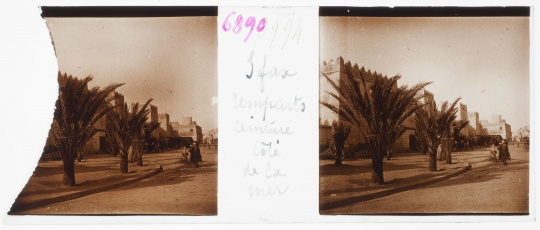 6890
Sfax
remparts
ceinture
Côté
de la
mer